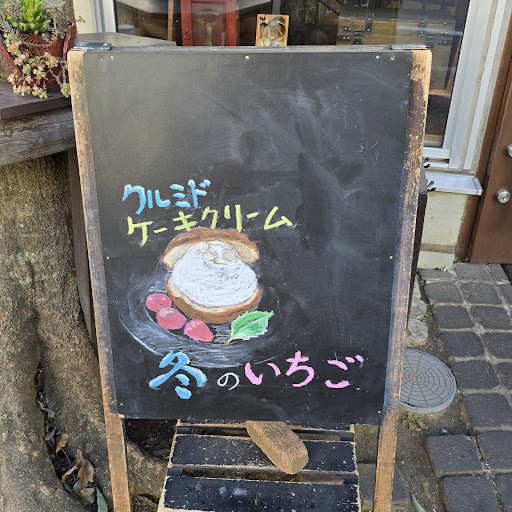 クルミド
ケーキクリーム
冬のいちご